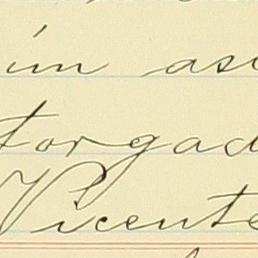 im as
torgad
Vicente